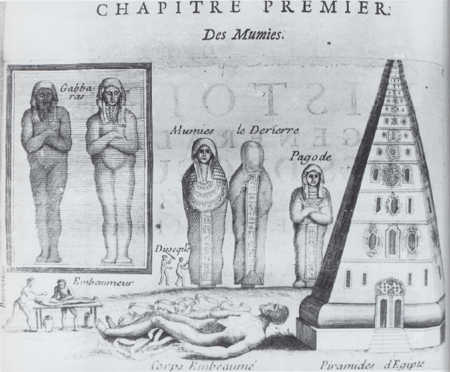 CHAPITRE PREMIER.
Des Mumies.
Gabba
ras
Mumies le Derierre
Pagode
Embaumeur
Corps Embeaumé
Piramides d'Egipte